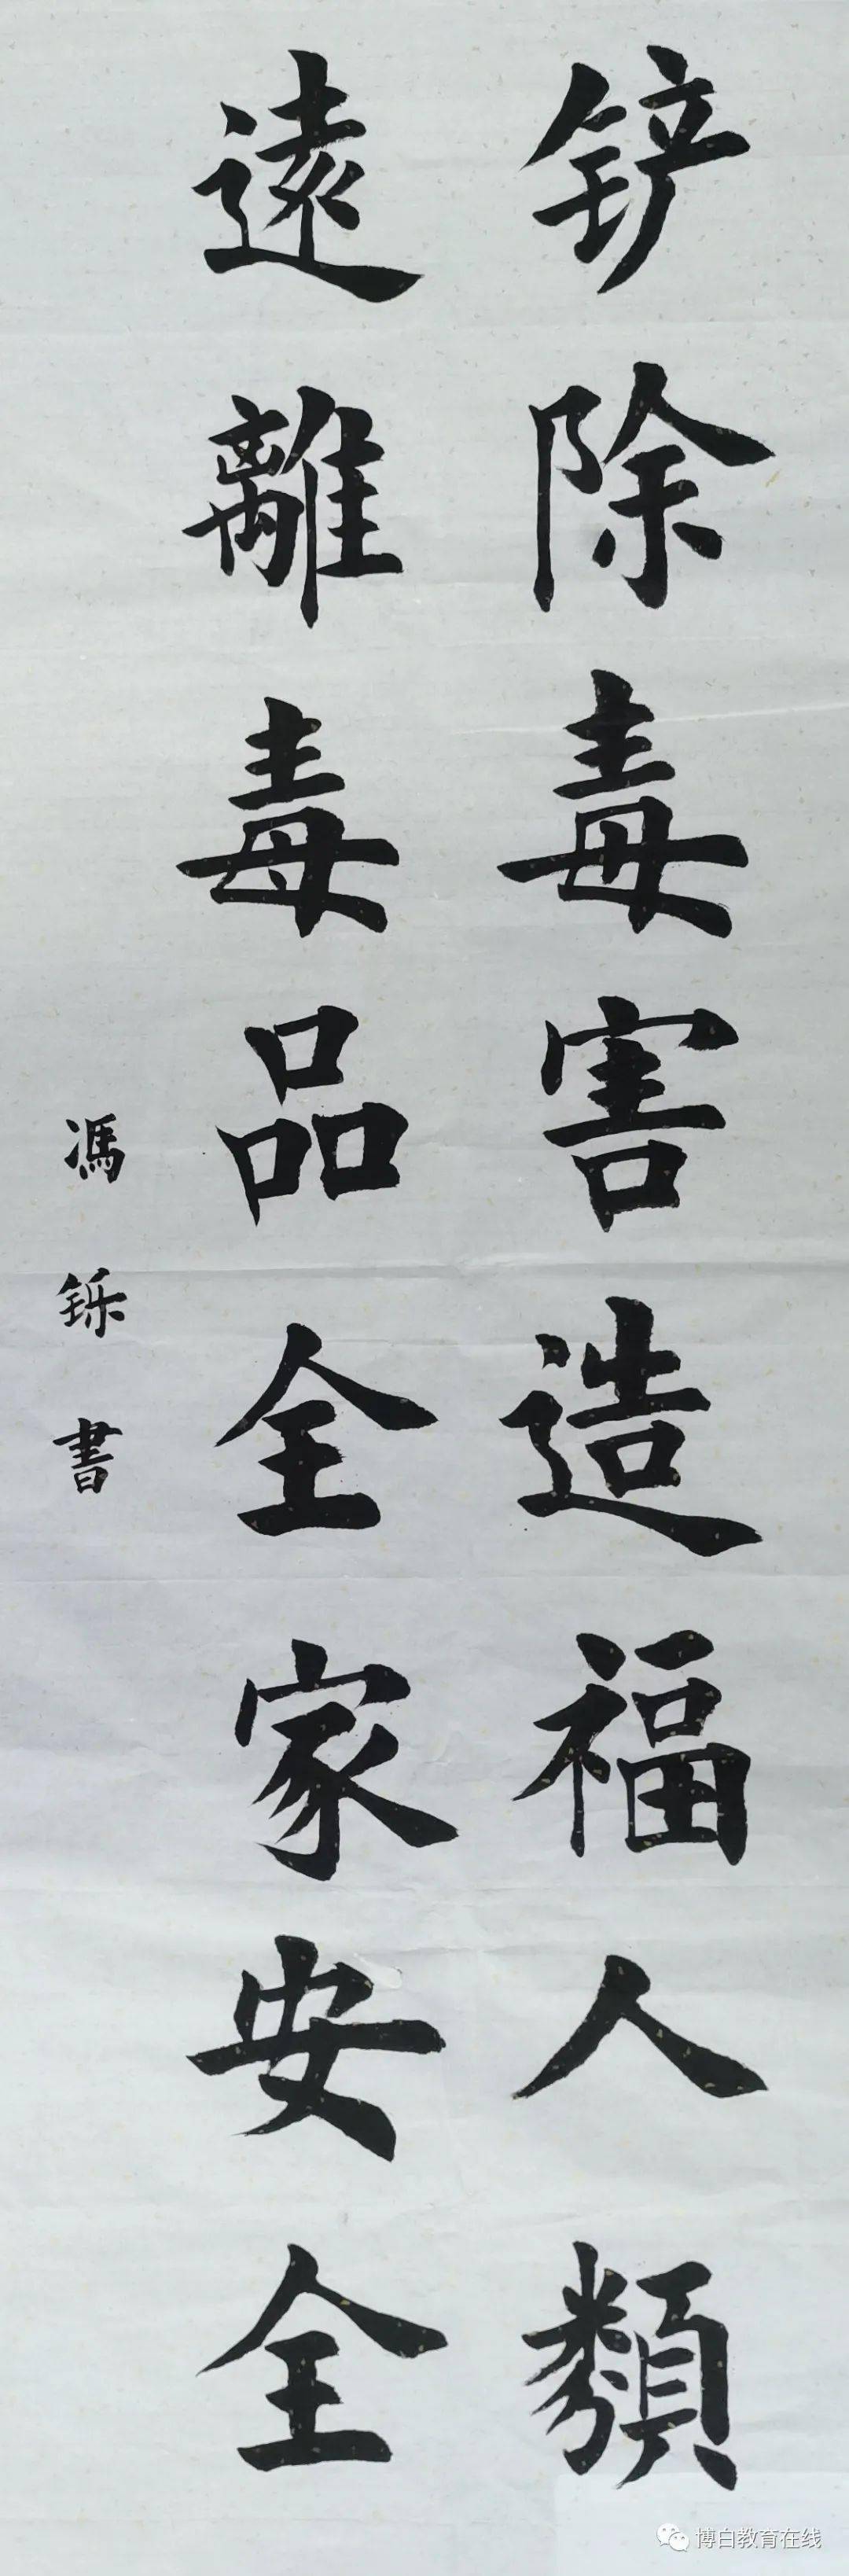 铲除毒害造福人類
遠離毒品全家安全
馮铄書
博白教育在线